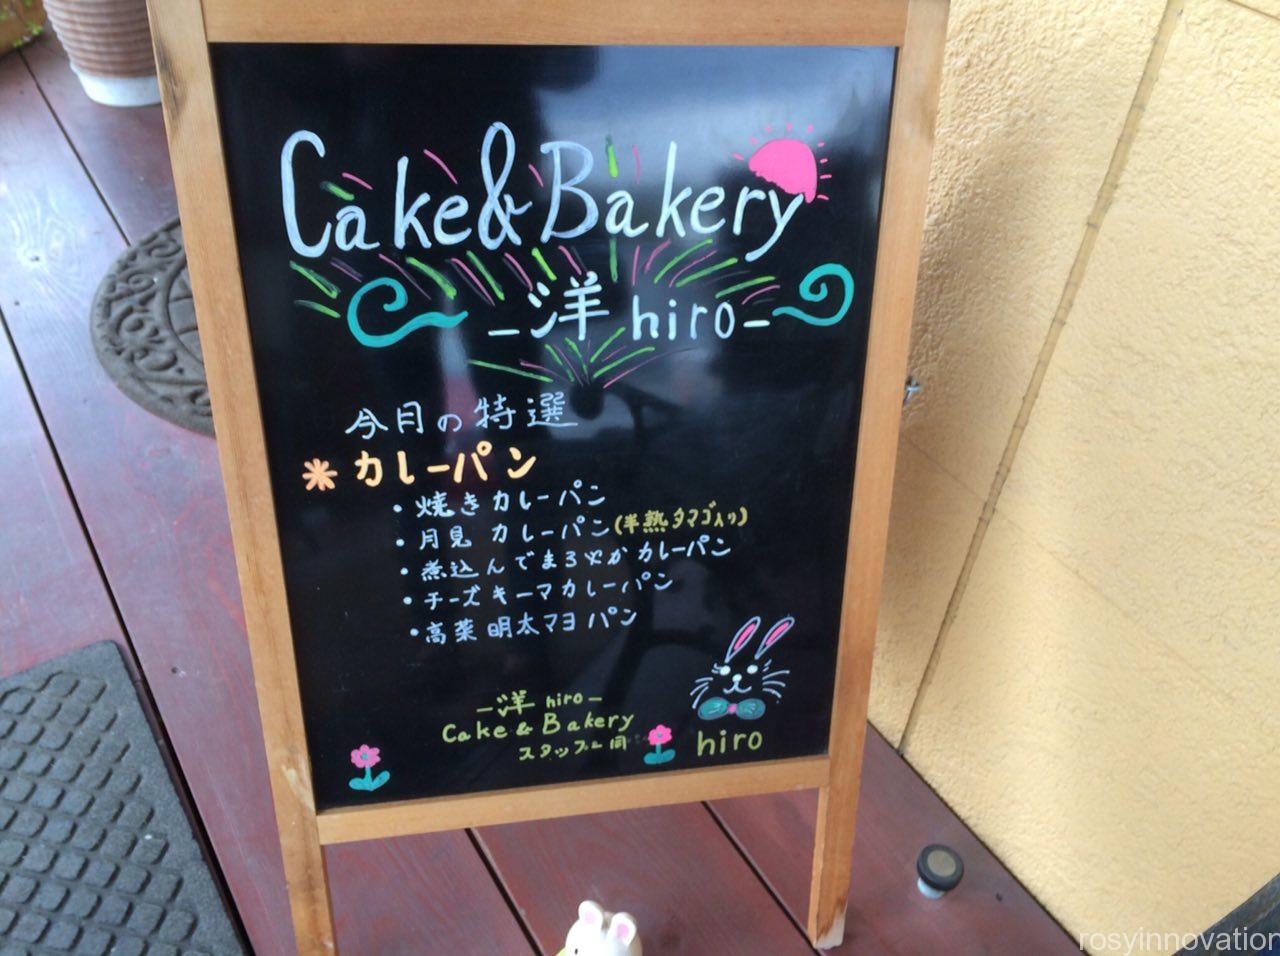 Cake&Bakery
-洋 hiro-
今月の特選
* カレーパン
・焼きカレーパン
・月見 カレーパン(半熟タマゴ入り)
・煮込んでまろやかカレーパン
・チーズキーマカレーパン
・高菜 明太マヨ パン
-洋 hiro-
Cake & Bakery
スタッフ一同
hiro
rosyinnovation